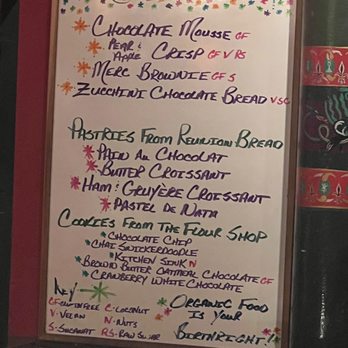 Chocolate Mousse GF
Pear & Apple Crisp GF V RS
Merc Brownie GF S
Zucchini Chocolate Bread V SG
Pastries From Reunion Bread
Pain Au Chocolat
Butter Croissant
Ham & Gruyère Croissant
Pastel de Nata
Cookies From The Flour Shop
Chocolate Chip
Chai Snickerdoodle
Kitchen Sink N
Brown Butter Oatmeal Chocolate GF
Cranberry White Chocolate
Key
GF-Gluten Free C-Coconut
V-Vegan N-Nuts
S-Sucanat RS-Raw Sugar
Organic Food
Is Your
Birthright!